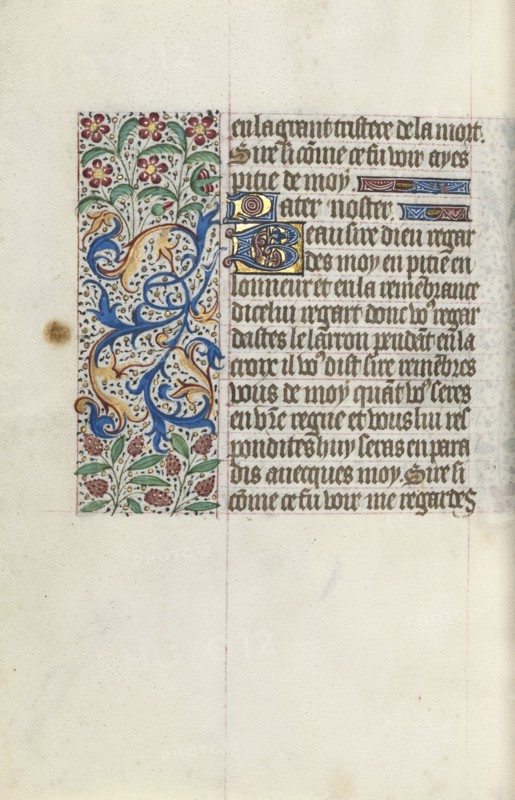 en la grant tristece de la mort.
Sire si cōme ce fu voir ayes
pitie de moy
Pater noster
Beau sire dieu regar
des moy en pitie en
lonneur et en la remēbrance
dicelui regart donc vo9 regar
dastes le larron pendāt en la
croix il vo9 dist sire remēbres
vous de moy quāt vo9 seres
en vr̄e regne et vous lui res
pondites huy seras en para
dis auecques moy. Sire si
cōme ce fu voir me regardes